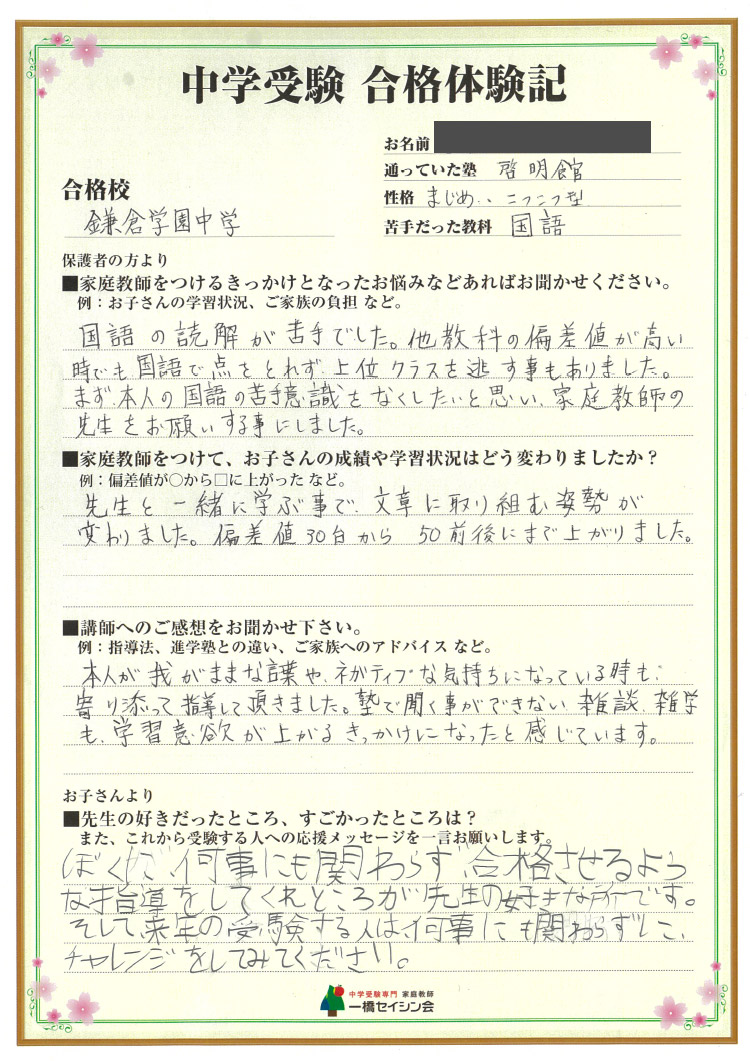 中学受験 合格体験記
お名前
通っていた塾 啓明館
合格校
性格 まじめ、、こつこつ型
鎌倉学園中学
苦手だった教科 国語
保護者の方より
■家庭教師をつけるきっかけとなったお悩みなどあればお聞かせください。
例：お子さんの学習状況、ご家族の負担 など。
国語の読解が苦手でした。他教科の偏差値が高い
時でも国語で点をとれず、上位クラスを逃す事もありました。
まず、本人の国語の苦手意識をなくしたいと思い、家庭教師の
先生をお願いする事にしました。
■家庭教師をつけて、お子さんの成績や学習状況はどう変わりましたか？
例：偏差値が○から□に上がった など。
先生と一緒に学ぶ事で、文章に取り組む姿勢が
変わりました。偏差値30台から 50前後にまで上がりました。
■講師へのご感想をお聞かせ下さい。
例：指導法、進学塾との違い、ご家族へのアドバイス など。
本人が我がままな言葉や、ネガティブな気持ちになっている時も、
寄り添って指導して頂きました。塾で聞く事ができない雑談、雑学
も、学習意欲が上がるきっかけになったと感じています。
お子さんより
■先生の好きだったところ、すごかったところは？
また、これから受験する人への応援メッセージを一言お願いします。
ぼくが何事にも関わらず合格させるよう
な指導をしてくれところが先生の好きな所です。
そして、来年の受験する人は何事にも関わらずして、
チャレンジをしてみてください。
中学受験専門 家庭教師
一橋セイシン会